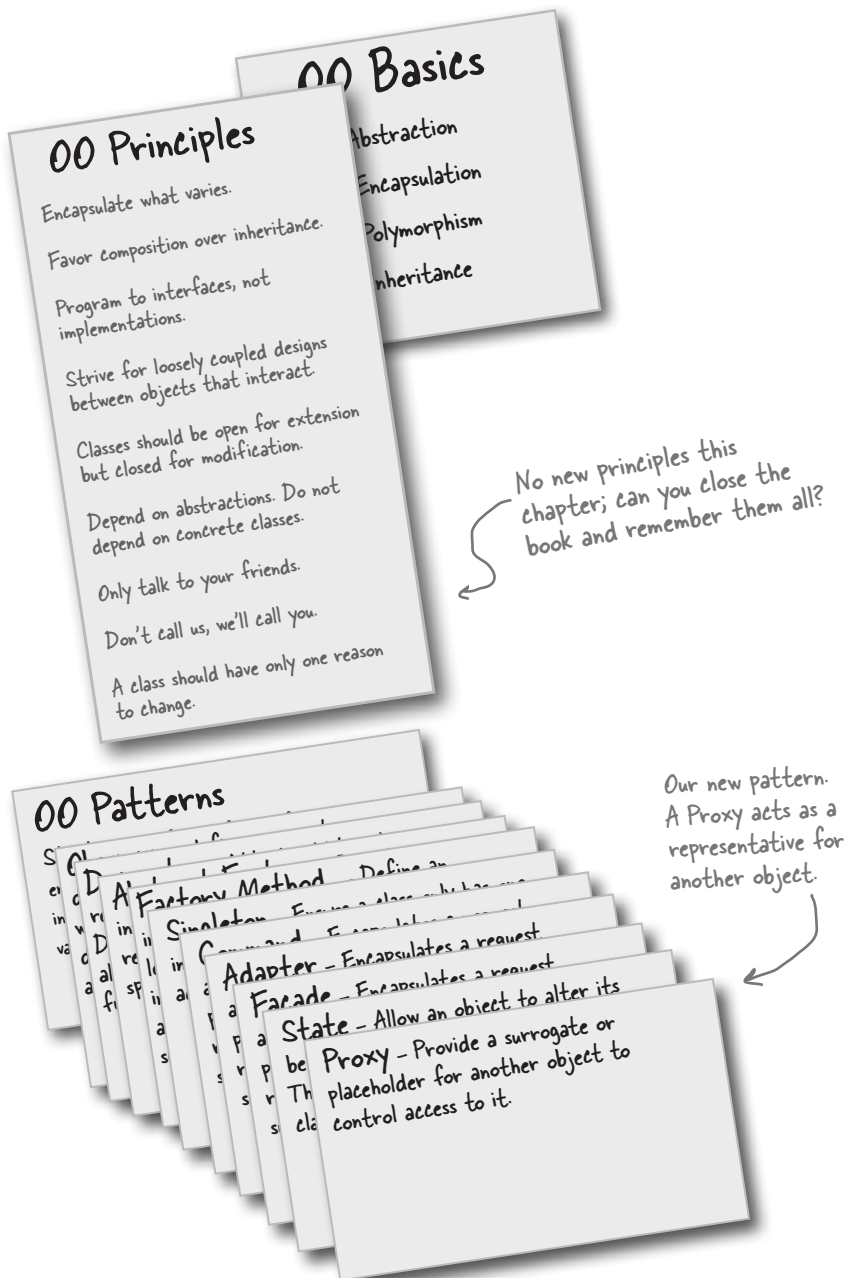 OO Basics
Abstraction
Encapsulation
Polymorphism
nheritance
OO Principles
Encapsulate what varies.
Favor composition over inheritance.
Program to interfaces, not
implementations.
Strive for loosely coupled designs
between objects that interact.
Classes should be open for extension
but closed for modification.
Depend on abstractions. Do not
depend on concrete classes.
Only talk to your friends.
Don't call us, we'll call you.
A class should have only one reason
to change.
No new principles this
chapter; can you close the
book and remember them all?
OO Patterns
Factory Method - Define an
Singleton - Ensure a class only has one
Command - Encapsulates a request
Adapter - Encapsulates a request
Facade - Encapsulates a request
State - Allow an object to alter its
Proxy - Provide a surrogate or
placeholder for another object to
control access to it.
Our new pattern.
A Proxy acts as a
representative for
another object.